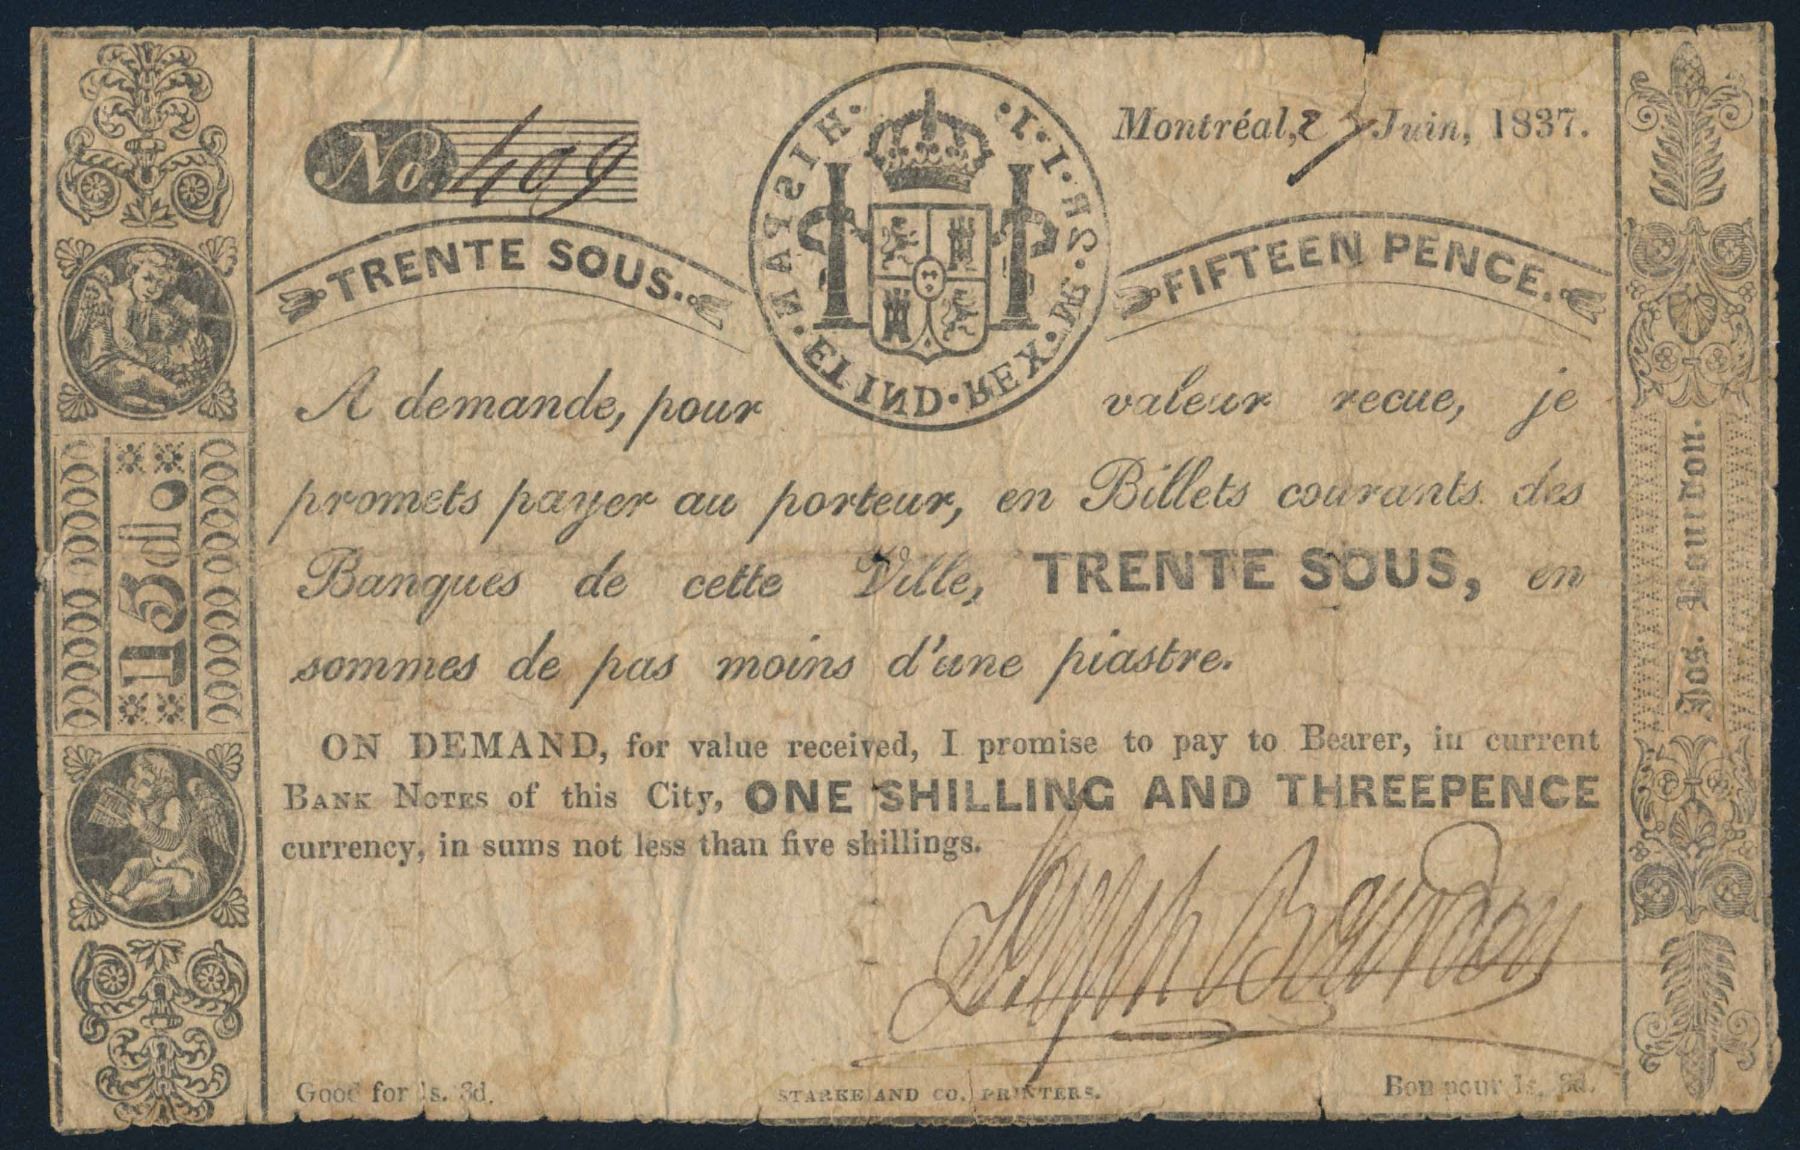 No. 409
Montréal, Juin, 1837.
TRENTE SOUS.
HISPAN·ET IND·REX·M·2R·I·I·
FIFTEEN PENCE.
A demande, pour valeur recue, je
promets payer au porteur, en Billets courants des
Banques de cette Ville, TRENTE SOUS, en
sommes de pas moins d'une piastre.
ON DEMAND, for value received, I promise to pay to Bearer, in current
BANK NOTES of this City, ONE SHILLING AND THREEPENCE
currency, in sums not less than five shillings.
Joseph Bourdon
Good for 1s. 3d.
STARKE AND CO. PRINTERS.
Bon pour 1s. 3d.
15d.
Jos. Bourdon.